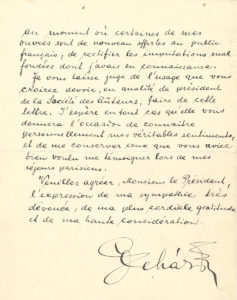 au moment où certaines de mes
œuvres sont de nouveau offertes au public
français, de rectifier les imputations mal
fondées dont j'avais eu connaissance.
Je vous laisse juge de l'usage que vous
croirez devoir, en qualité de président
de la Société des Auteurs, faire de cette
lettre. J'espère en tout cas qu'elle vous
donnera l'occasion de connaître
personnellement mes véritables sentiments,
et de me conserver ceux que vous aviez
bien voulu me témoigner lors de mes
séjours parisiens.
Veuillez agréer, Monsieur le Président,
l'expression de ma sympathie très
dévouée, de ma plus cordiale gratitude
et de ma haute considération.
Lehár